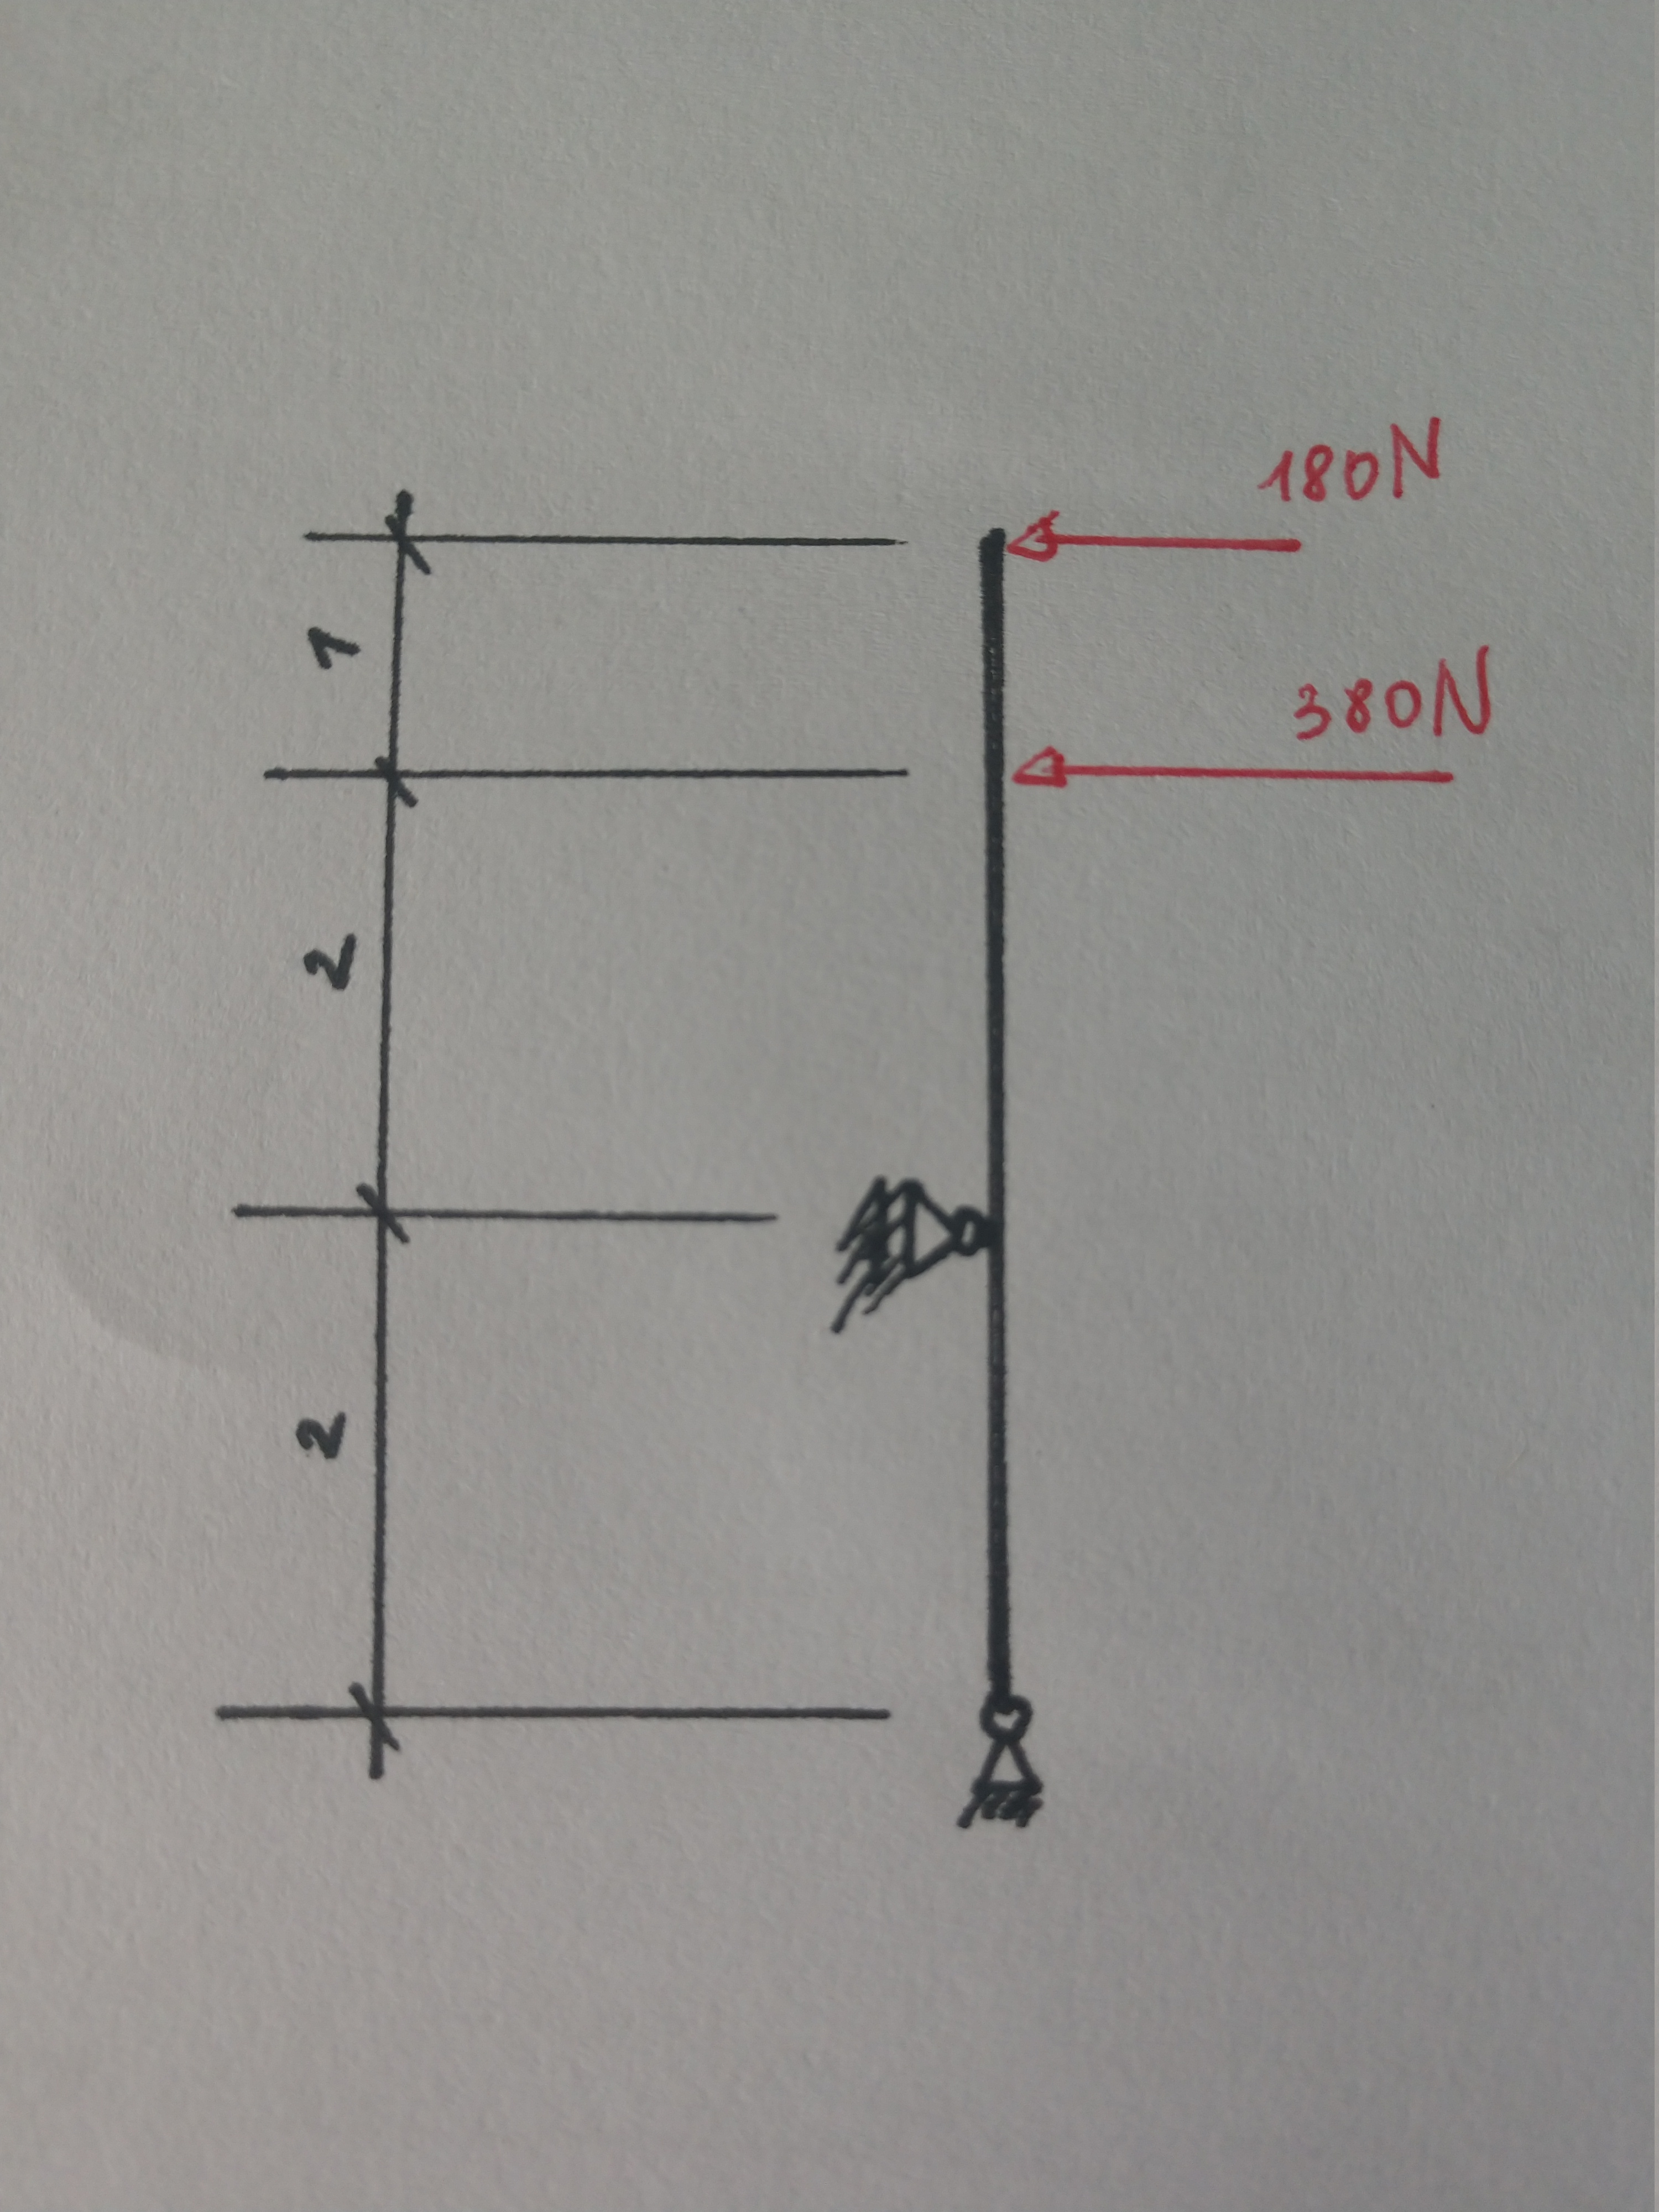 180N
1
380N
2
2